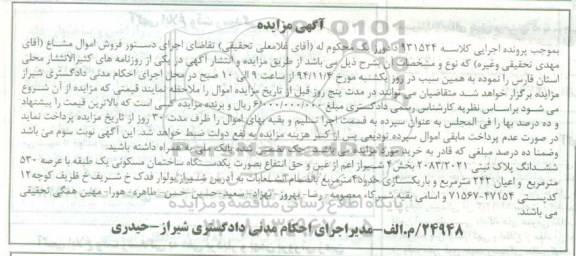 آگهی مزایده
بموجب پرونده اجرایی کلاسه ۹۳۱۵۲۴ محکوم له (آقای غلامعلی تحقیقی) تقاضای اجرای دستور فروش اموال مشاع (آقای
مهدی تحقیقی وغیره) که نوع و مشخصات آن بشرح ذیل می باشد از طریق مزایده و انتشار آگهی در یکی از روزنامه های کثیرالانتشار محلی
استان فارس را نموده به همین سبب در روز یکشنبه مورخ ۹۴/۱۱/۴ از ساعت ۹ الی ۱۰ صبح در محل اجرای احکام مدنی دادگستری شیراز
مزایده برگزار خواهد شد متقاضیان می توانند در مدت پنج روز قبل از تاریخ مزایده اموال را ملاحظه نمایند قیمتی که مزایده از آن شروع
می شود براساس نظریه کارشناس رسمی دادگستری مبلغ ۶/۰۰۰/۰۰۰/۰۰۰ ریال و برنده مزایده کسی است که بالاترین قیمت را پیشنهاد
و ده درصد بها را فی المجلس به عنوان سپرده به قسمت اجرا تسلیم و بقیه بهای اموال را ظرف مدت ۳۰ روز از تاریخ مزایده پرداخت نماید
در صورت عدم پرداخت مابقی اموال سپرده تودیعی پس از کسر هزینه مزایده به نفع دولت ضبط خواهد شد. این آگهی نوبت سوم می باشد
وضمنا ده درصد مبلغی که قادر به خرید مورد مزایده می باشد چک تضمین شده بانک ملی به همراه داشته باشید.
ششدانگ پلاک ثبتی ۲۰۸۳/۲۰۲۱ بخش ۴ شیراز اعم از عین و حق انتفاع بصورت یکدستگاه ساختمان مسکونی یک طبقه با عرصه ۵۳۰
مترمربع و اعیان ۲۴۲ مترمربع و باریکسازی حدود ۴ مترمربع بانضمام انشعابات به آدرس شیراز بلوار فدک خ شریف خ ظریف کوچه ۱۲
کدپستی ۴۷۱۵۴-۷۱۵۶۷ و اسامی بقیه شرکاء معصومه- رضا- بهروز- بهزاد- سعید- حسین- حسن- طاهره- هورا- مهین همگی تحقیقی
می باشند.
۲۴۹۴۸/م.الف-مدیراجرای احکام مدنی دادگستری شیراز-حیدری